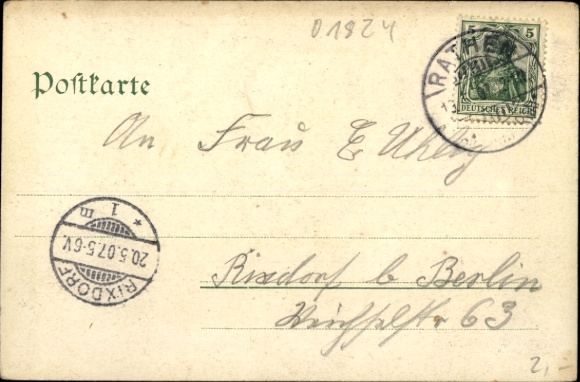 01824
5 5
RATHEN
DEUTSCHES REICH
Postkarte
An Frau E Uhlig
* 1 m
20.5.07.5-6V.
RIXDORF
Rixdorf b Berlin
Weichselstr 63
2,-